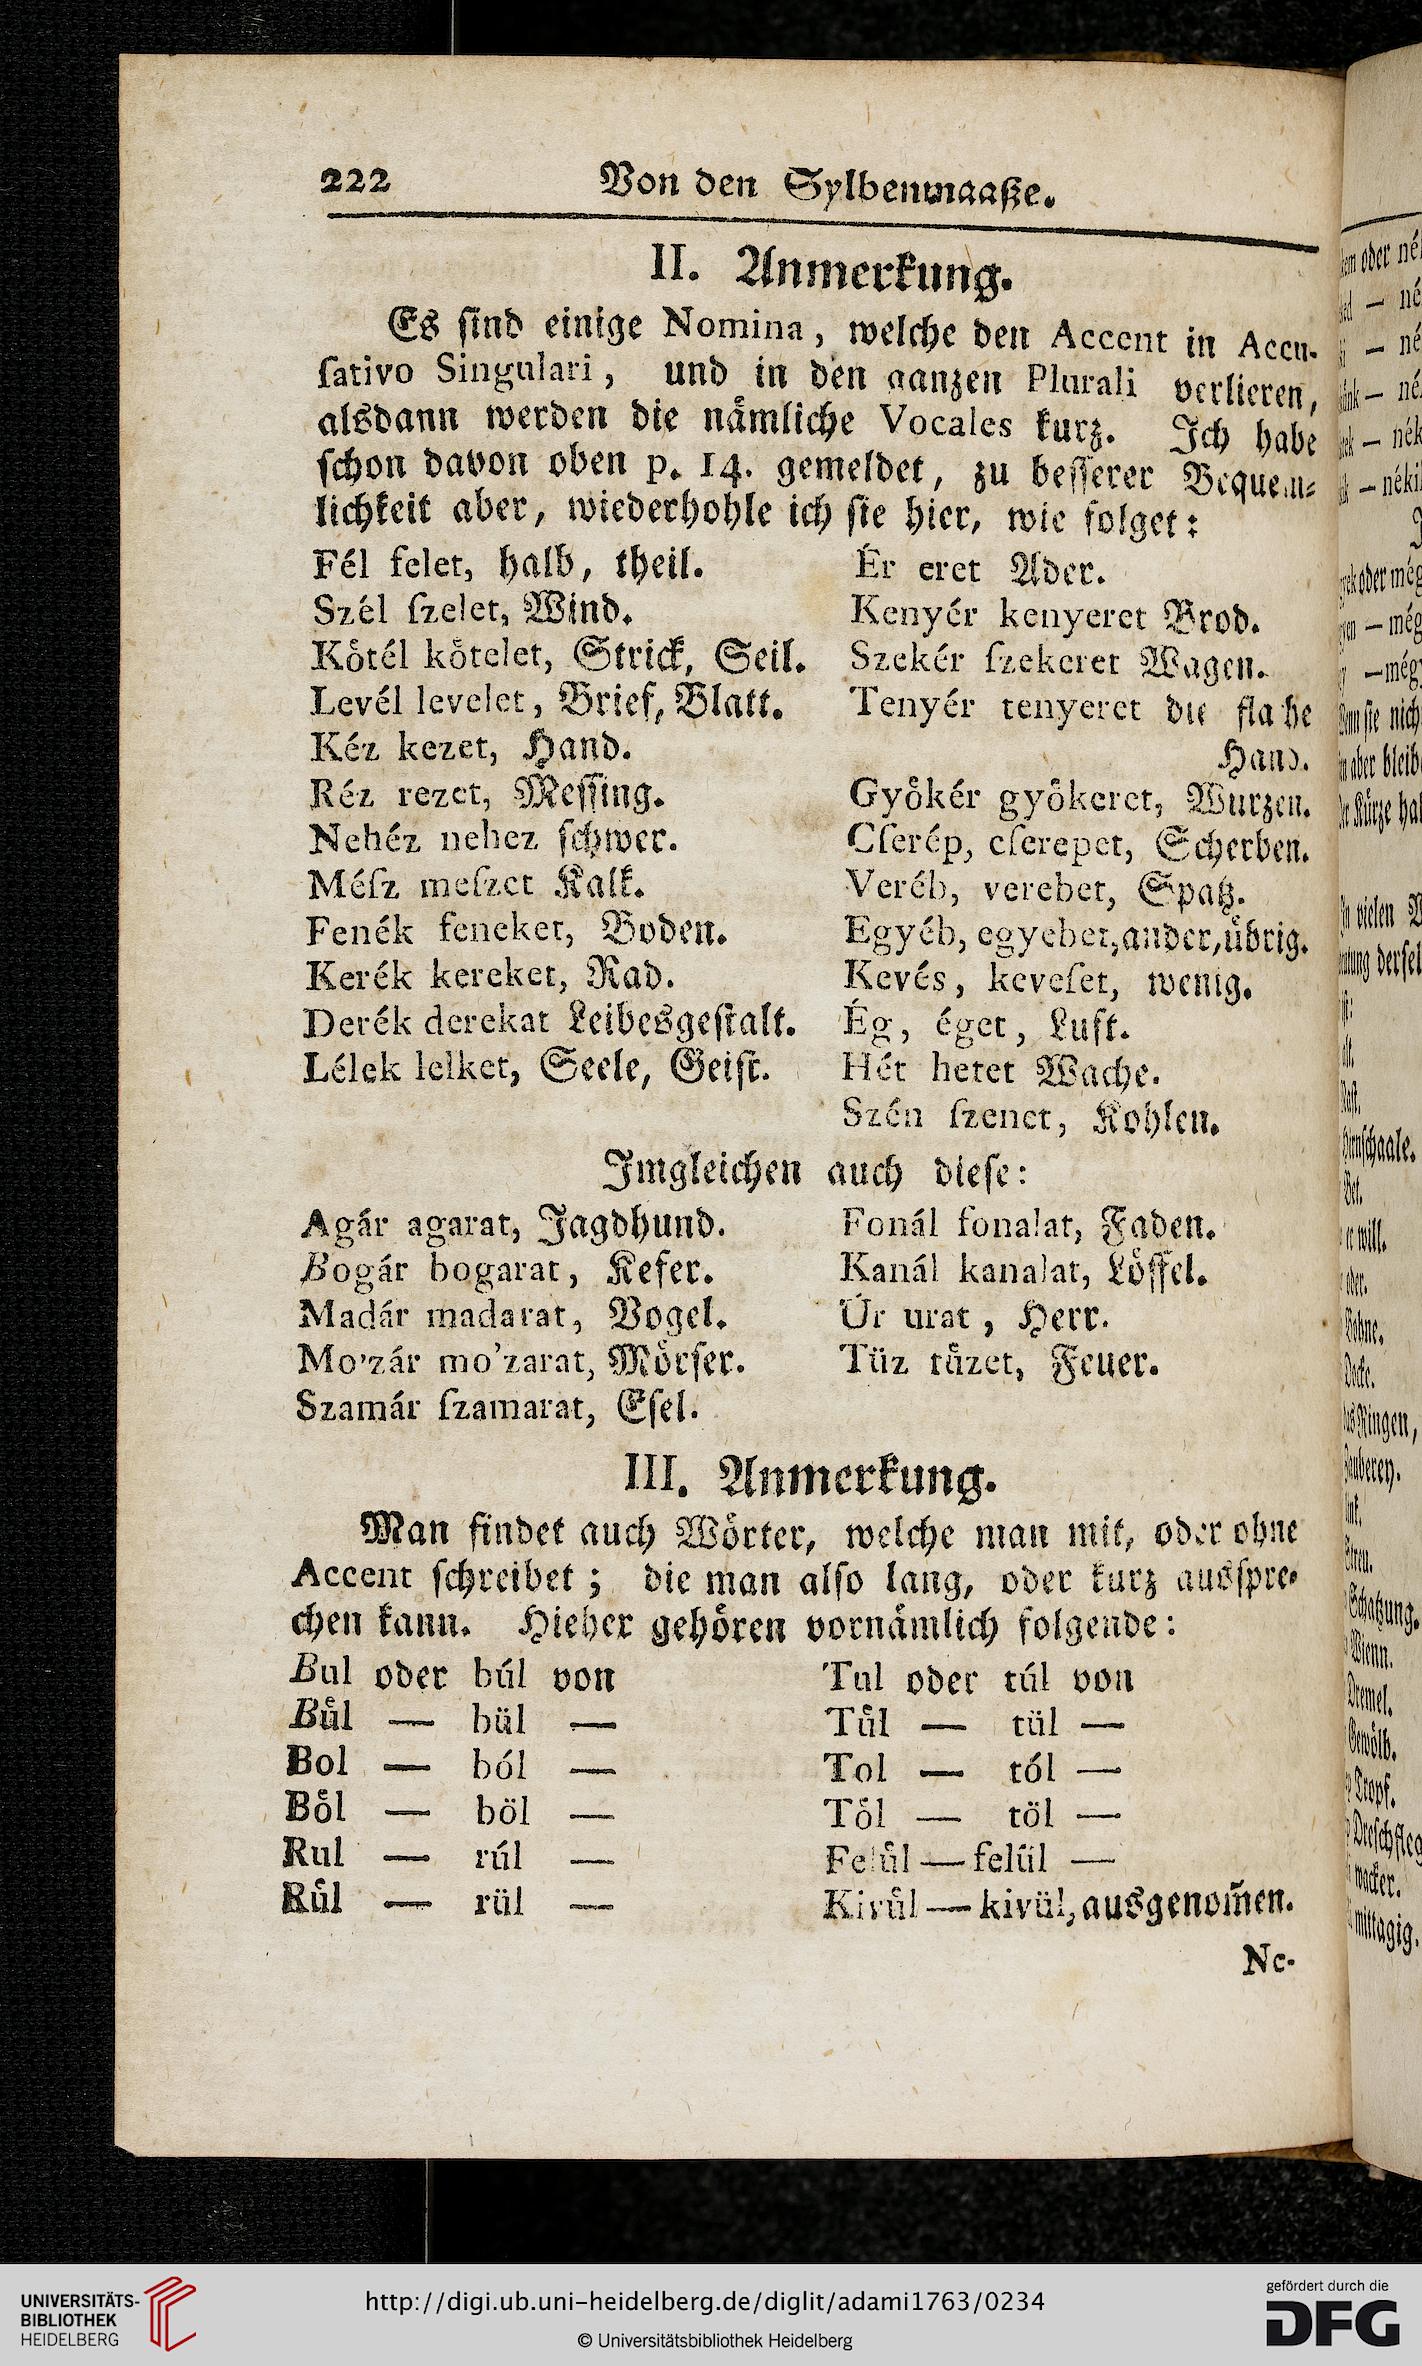 222 Von den Sylbenmaaße.
II. Anmerkung.
Es sind einige Nomina, welche den Accent in Accu-
sativo Singulari, und in den ganzen Plurali verlieren,
alsdann werden die nämliche Vocales kurz. Ich habe
schon davon oben p. 14. gemeldet, zu besserer Bequem-
lichkeit aber, wiederhohle ich sie hier, wie folget:
Fél felet, halb, theil.
Szél ſzelet, Wind.
Kötél kötelet, Strick, Seil.
Levél levelet, Brief, Blatt.
Kéz kezet, Hand.
Réz rezet, Messing.
Nehéz nehez schwer.
Méſz meſzet Kalk.
Fenék feneket, Boden.
Kerék kereket, Rad.
Derék derekat Leibesgestalt.
Lélek lelket, Seele, Geist.
Ér eret Ader.
Kenyér kenyeret Brod.
Szekér ſzekeret Wagen.
Tenyér tenyeret die flache
Hand.
Gyökér gyökeret, Wurzen.
Cſerép, cſerepet, Scherben.
Veréb, verebet, Spatz.
Egyéb, egyebet, ander, übrig.
Kevés, keveſet, wenig.
Ég, éget, Luft.
Hét hetet Wache.
Szén ſzenet, Kohlen.
Imgleichen auch diese:
Agár agarat, Jagdhund.
Bogár bogarat, Kefer.
Madár madarat, Vogel.
Mo'zár mo'zarat, Mörser.
Szamár ſzamarat, Esel.
Fonál fonalat, Faden.
Kanál kanalat, Löffel.
Úr urat, Herr.
Tüz tůzet, Feuer.
III. Anmerkung.
Man findet auch Wörter, welche man mit, oder ohne
Accent schreibet; die man also lang, oder kurz ausspre-
chen kann. Hieher gehören vornämlich folgende:
Bul oder búl von
Bůl — bül —
Bol — ból —
Ből — böl —
Rul — rúl —
Růl — rül —
Tul oder túl von
Tůl — tül —
Tol — tól —
Től — töl —
Felůl — felül —
Kivůl — kivül, ausgenom̃en.
Ne-
UNIVERSITÄTS-
BIBLIOTHEK
HEIDELBERG
http://digi.ub.uni-heidelberg.de/diglit/adami1763/0234
© Universitätsbibliothek Heidelberg
gefördert durch die
DFG